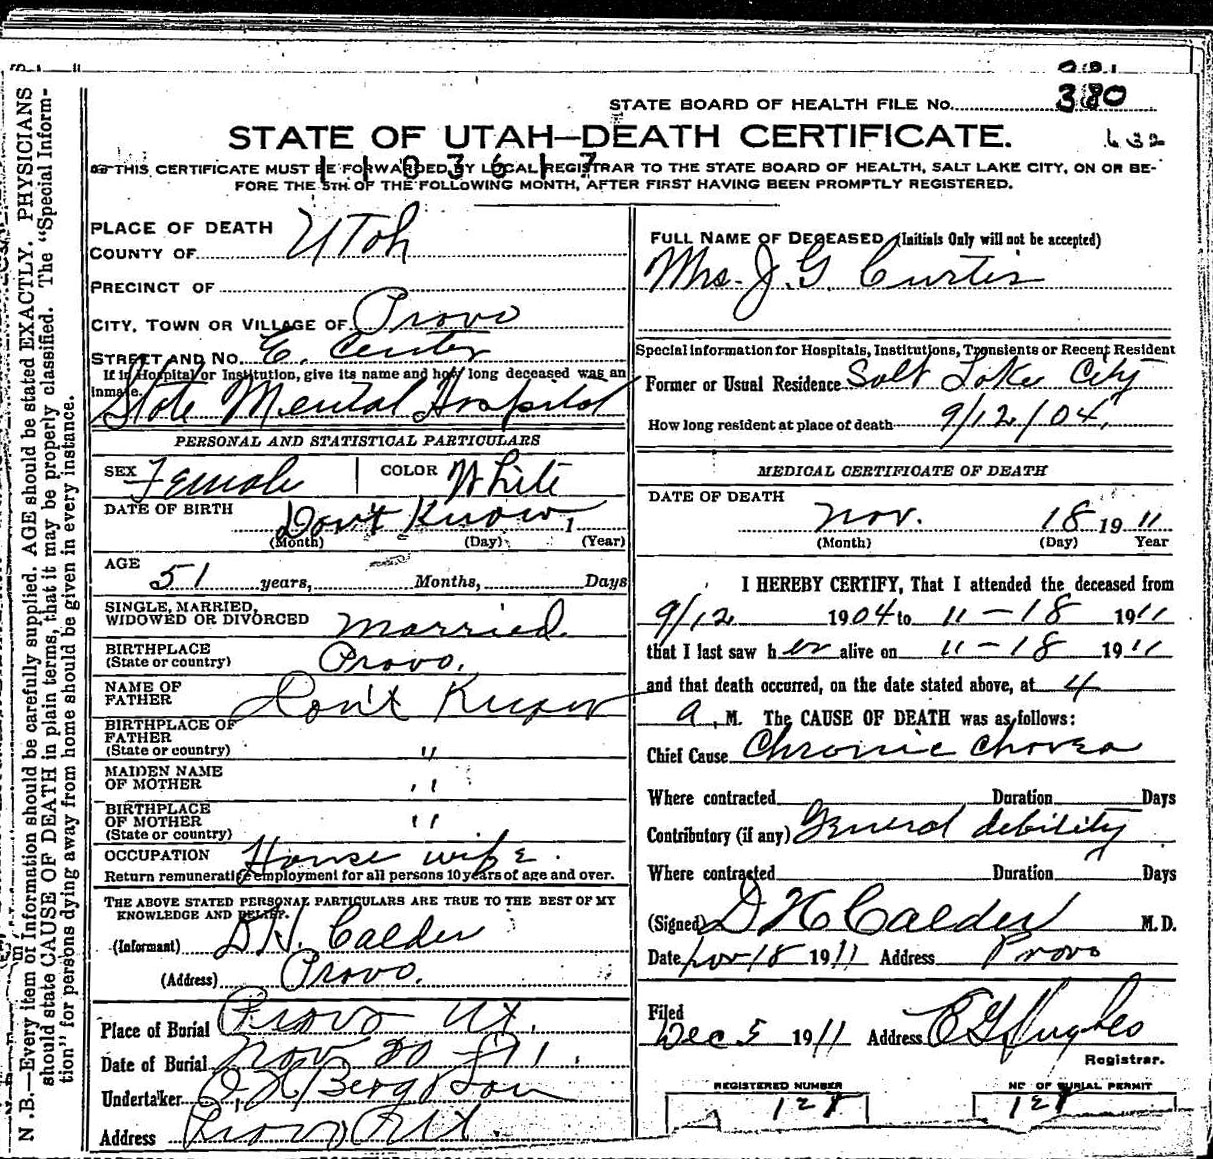 STATE BOARD OF HEALTH FILE No. 380
STATE OF UTAH—DEATH CERTIFICATE.
632
THIS CERTIFICATE MUST BE FORWARDED BY LOCAL REGISTRAR TO THE STATE BOARD OF HEALTH, SALT LAKE CITY, ON OR BE-
FORE THE 5TH OF THE FOLLOWING MONTH, AFTER FIRST HAVING BEEN PROMPTLY REGISTERED.
1103617
N.B.—Every item of information should be carefully supplied. AGE should be stated EXACTLY. PHYSICIANS
should state CAUSE OF DEATH in plain terms, that it may be properly classified. The "Special Inform-
tion" for persons dying away from home should be given in every instance.
PLACE OF DEATH
COUNTY OF Utah
PRECINCT OF
CITY, TOWN OR VILLAGE OF Provo
STREET AND No. E. Center
If in Hospital or Institution, give its name and how long deceased was an
inmate.
State Mental Hospital
PERSONAL AND STATISTICAL PARTICULARS
SEX Female COLOR White
DATE OF BIRTH Don't Know 1
(Month) (Day) (Year)
AGE 51 years, Months, Days
SINGLE, MARRIED,
WIDOWED OR DIVORCED Married
BIRTHPLACE
(State or country) Provo.
NAME OF
FATHER Don't Know
BIRTHPLACE OF
FATHER
(State or country) "
MAIDEN NAME
OF MOTHER "
BIRTHPLACE
OF MOTHER
(State or country) "
OCCUPATION House wife.
Return remunerative employment for all persons 10 years of age and over.
THE ABOVE STATED PERSONAL PARTICULARS ARE TRUE TO THE BEST OF MY
KNOWLEDGE AND BELIEF.
(Informant) D.H. Calder
(Address) Provo.
Place of Burial Provo Ut.
Date of Burial Nov 20 - 1911.
Undertaker O.H. Berg & Son
Address Provo Ut.
FULL NAME OF DECEASED (Initials Only will not be accepted)
Mrs. J. G. Curtis
Special information for Hospitals, Institutions, Transients or Recent Resident
Former or Usual Residence Salt Lake City
How long resident at place of death 9/12/04.
MEDICAL CERTIFICATE OF DEATH
DATE OF DEATH
Nov. 18 1911
(Month) (Day) Year
I HEREBY CERTIFY, That I attended the deceased from
9/12 1904 to 11-18 1911
that I last saw her alive on 11-18 1911
and that death occurred, on the date stated above, at 4
a. M. The CAUSE OF DEATH was as follows:
Chief Cause Chronic chorea
Where contracted Duration Days
Contributory (if any) General debility
Where contracted Duration Days
(Signed) D H Calder M.D.
Date Nov 18 1911 Address Provo
Filed
Dec 5 1911 Address E G Hughes
Registrar.
REGISTERED NUMBER
128
NO OF BURIAL PERMIT
128